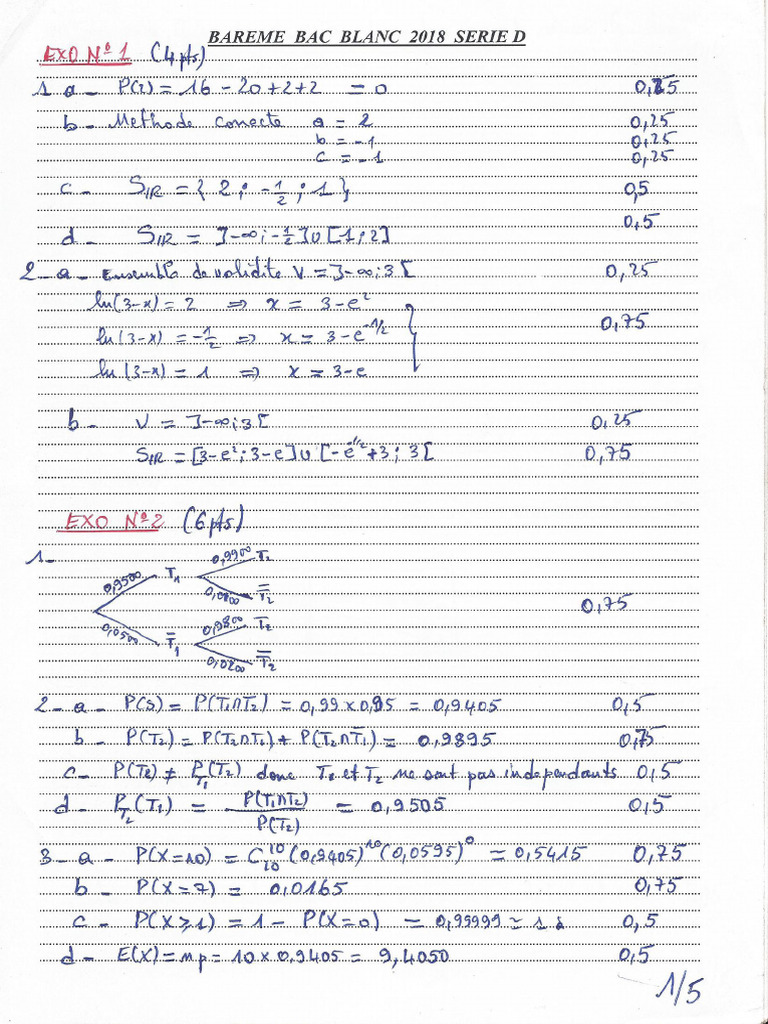 BAREME BAC BLANC 2018 SERIE D
EXO Nº1 (4pts)
1 a - P(2) = 16 - 20 + 2 + 2 = 0 0,25
b - Methode correcte a = 2 0,25
b = -1 0,25
c = -1 0,25
c - S_IR = { 2 ; -1/2 ; 1 } 0,5
d - S_IR = ]-∞ ; -1/2] ∪ [1 ; 2] 0,5
2 - a - Ensemble de validité V = ]-∞ ; 3[ 0,25
ln(3-x) = 2 ⟹ x = 3 - e²
ln(3-x) = -1/2 ⟹ x = 3 - e^(-1/2) 0,75
ln(3-x) = 1 ⟹ x = 3 - e
b - V = ]-∞ ; 3[ 0,25
S_IR = [3-e² ; 3-e] ∪ [-e^(-1/2) + 3 ; 3[ 0,75
EXO Nº2 (6pts)
1 -
0,9500 T₁ 0,9900 T₂
0,0100 T̅₂
0,0500 T̅₁ 0,9800 T₂ 0,75
0,0200 T̅₂
2 - a - P(S) = P(T₁∩T₂) = 0,99 × 0,95 = 0,9405 0,5
b - P(T₂) = P(T₂∩T₁) + P(T₂∩T̅₁) = 0,9895 0,75
c - P(T₂) ≠ P_T₁(T₂) donc T₁ et T₂ ne sont pas independants 0,5
d - P_T₂(T₁) = P(T₁∩T₂)/P(T₂) = 0,9505 0,5
3 - a - P(X=10) = C₁₀¹⁰ (0,9405)¹⁰ (0,0595)⁰ = 0,5415 0,75
b - P(X=7) = 0,0165 0,75
c - P(X⩾1) = 1 - P(X=0) = 0,99999 ≃ 1 0,5
d - E(X) = np = 10 × 0,9405 = 9,4050 0,5
1/5